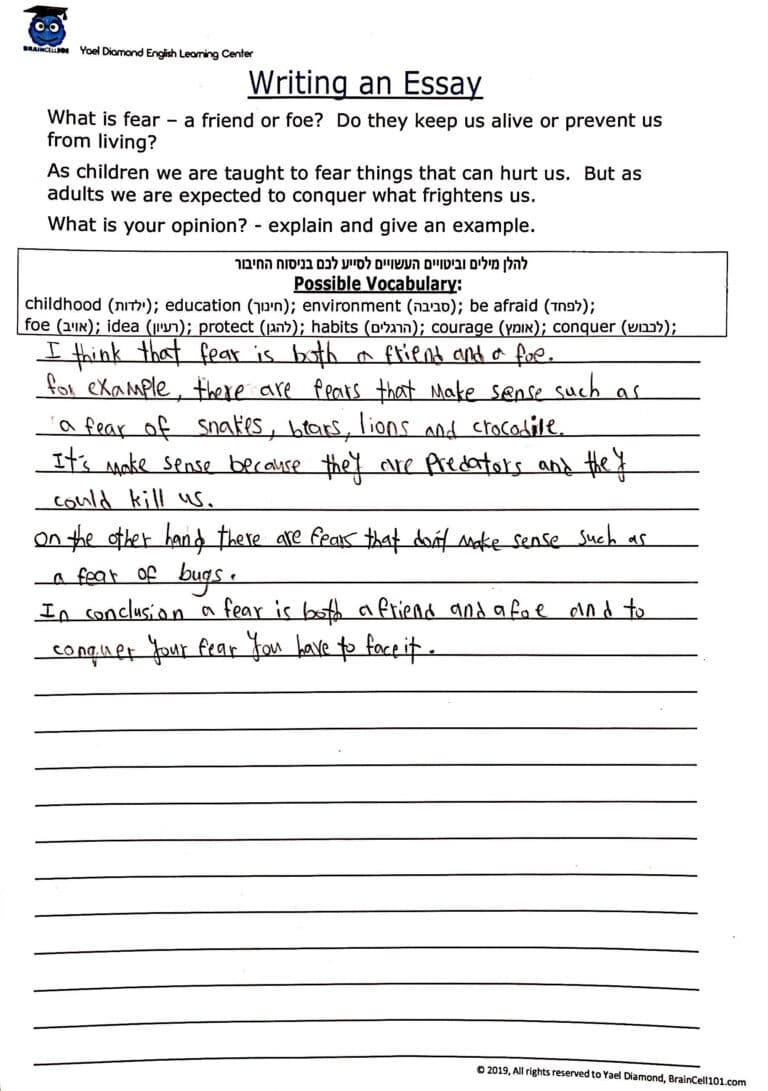 BRAINCELL101
Yael Diamond English Learning Center
Writing an Essay
What is fear – a friend or foe? Do they keep us alive or prevent us
from living?
As children we are taught to fear things that can hurt us. But as
adults we are expected to conquer what frightens us.
What is your opinion? - explain and give an example.
להלן מילים וביטויים העשויים לסייע לכם בניסוח החיבור
Possible Vocabulary:
childhood (ילדות); education (חינוך); environment (סביבה); be afraid (לפחד);
foe (אויב); idea (רעיון); protect (להגן); habits (הרגלים); courage (אומץ); conquer (לכבוש);
I think that fear is both a friend and a foe.
for example, there are fears that make sense such as
a fear of snakes, bears, lions and crocodile.
It's make sense because they are predators and they
could kill us.
on the other hand there are fears that don't make sense such as
a fear of bugs.
In conclusion a fear is both a friend and a foe and to
conquer your fear you have to face it.
© 2019, All rights reserved to Yael Diamond, BrainCell101.com